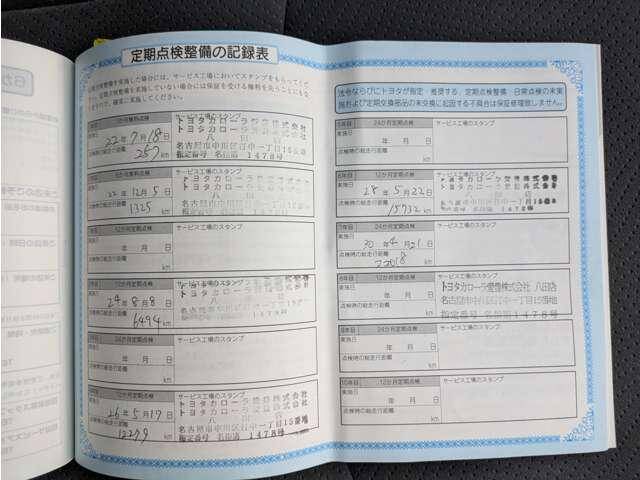 定期点検整備の記録表
定期点検整備を実施した場合には、サービス工場においてスタンプをもらってく
定期点検整備を実施していない場合には保証を受ける権利を失うことにもな
ますので、確実に実施してください。
1か月無料点検
サービス工場のスタンプ
実施日
22年7月18日
点検時の総走行距離
257 km
トヨタカローラ愛豊株式会社
八田店
名古屋市中川区打中一丁目15番地
指定番号 名指第 1478号
6か月無料点検
サービス工場のスタンプ
実施日
22年12月5日
点検時の総走行距離
1325 km
12か月定期点検
サービス工場のスタンプ
実施日
年 月 日
点検時の総走行距離
km
12か月定期点検
サービス工場のスタンプ
実施日
24年8月8日
点検時の総走行距離
6494 km
24か月定期点検
サービス工場のスタンプ
実施日
年 月 日
点検時の総走行距離
km
12か月定期点検
サービス工場のスタンプ
実施日
26年5月17日
点検時の総走行距離
12279 km
名古屋市中川区打中一丁目15番地
指定番号 名指第 1478号
法令ならびにトヨタが指定・推奨する、定期点検整備・日常点検の未実
施および定期交換部品の未交換に起因する不具合は保証修理致しません。
5年目
24か月定期点検
サービス工場のスタンプ
実施日
年 月 日
点検時の総走行距離
km
6年目
12か月定期点検
サービス工場のスタンプ
実施日
28年5月22日
点検時の総走行距離
15732 km
7年目
24か月定期点検
サービス工場のスタンプ
実施日
30年4月21日
点検時の総走行距離
km
8年目
12か月定期点検
サービス工場のスタンプ
実施日
年 月 日
点検時の総走行距離
km
トヨタカローラ愛豊株式会社 八田店
名古屋市中川区打中一丁目15番地
指定番号 名指第 1478号
9年目
24か月定期点検
サービス工場のスタンプ
実施日
年 月 日
点検時の総走行距離
km
10年目
12か月定期点検
サービス工場のスタンプ
実施日
年 月 日
点検時の総走行距離
km